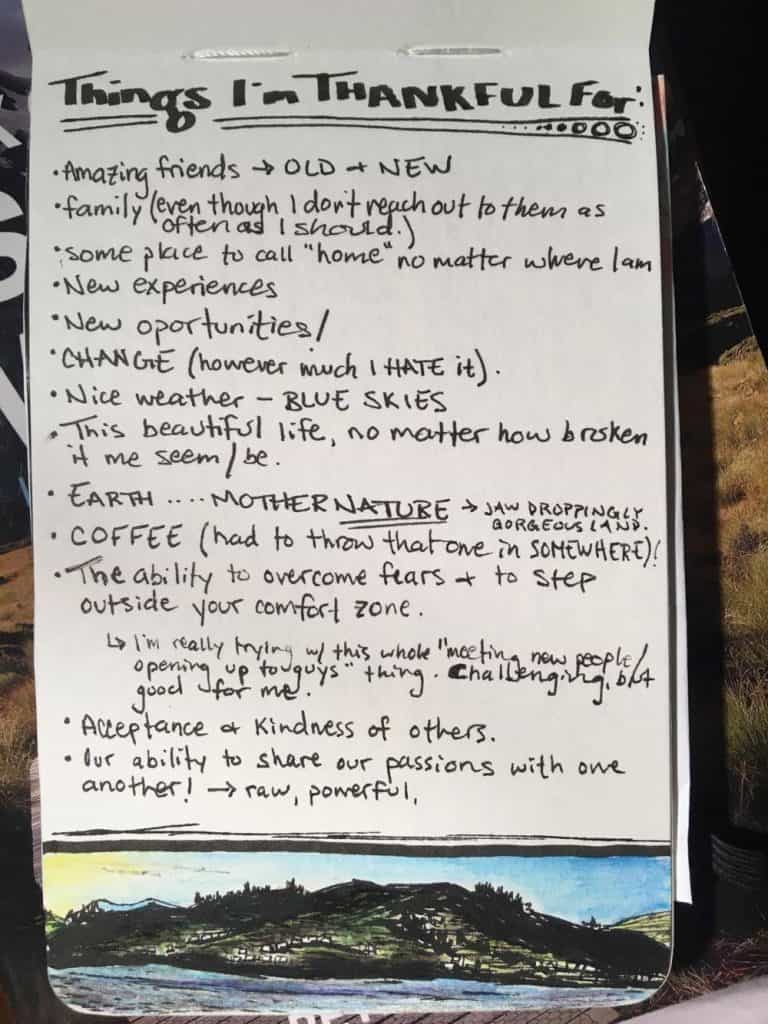 Things I'm THANKFUL For:
• Amazing friends → OLD + NEW
• family (even though I don't reach out to them as
often as I should.)
• some place to call "home" no matter where I am
• New experiences
• New oportunities/
• CHANGE (however much I HATE it).
• Nice weather – BLUE SKIES
• This beautiful life, no matter how broken
it me seem/be.
• EARTH .... MOTHER NATURE → JAW DROPPINGLY
GORGEOUS LAND.
• COFFEE (had to throw that one in SOMEWHERE)!
• The ability to overcome fears + to step
outside your comfort zone.
↳ I'm really trying w/ this whole "meeting new people/
opening up to guys" thing. Challenging, but
good for me.
• Acceptance & Kindness of others.
• Our ability to share our passions with one
another! → raw, powerful,